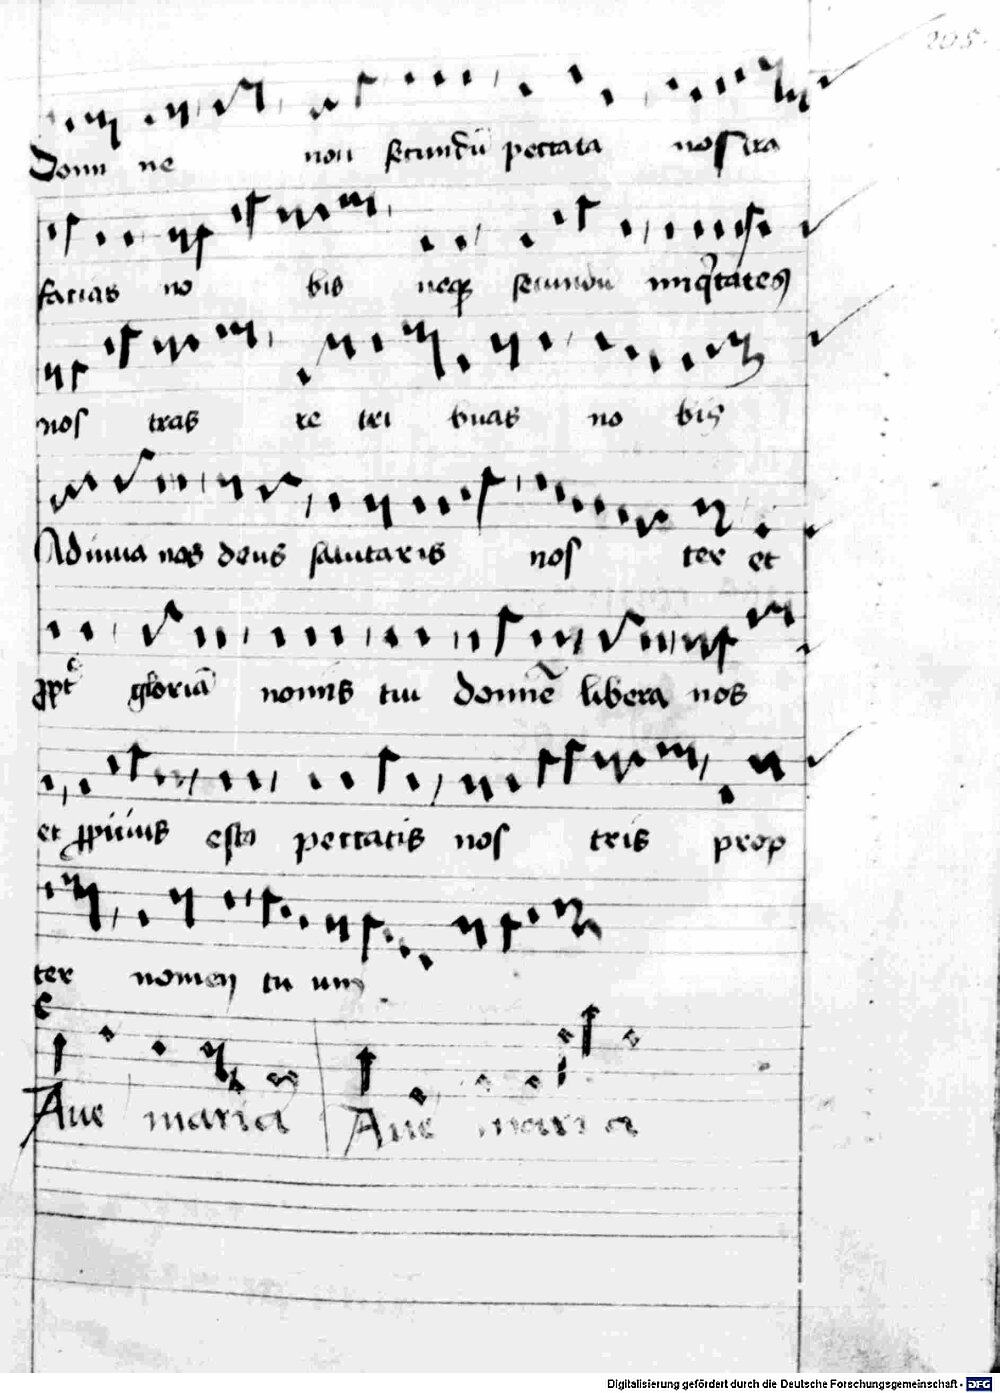 205.
Domi ne non secundū peccata nostra
facias no bis neqꝫ secundū iniqͥtates
nos tras re tri buas no bis
Adiuua nos deus salutaris nos ter et
ꝓpt᷑ gloriā nomīs tui domīe libera nos
et ꝓpicius esto peccatis nos tris prop
ter nomen tu um
Aue maria Aue maria
Digitalisierung gefördert durch die Deutsche Forschungsgemeinschaft - DFG